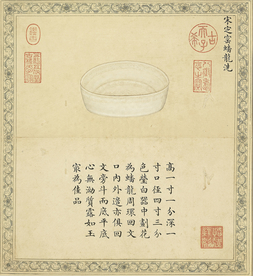 宋定窰蟠龍洗
古希天子
高一寸一分深一
寸口徑四寸三分
色瑩白器中劃花
為蟠龍周環回文
口內外邊亦俱回
文旁斗而底平底
心無泑質露如玉
為佳品